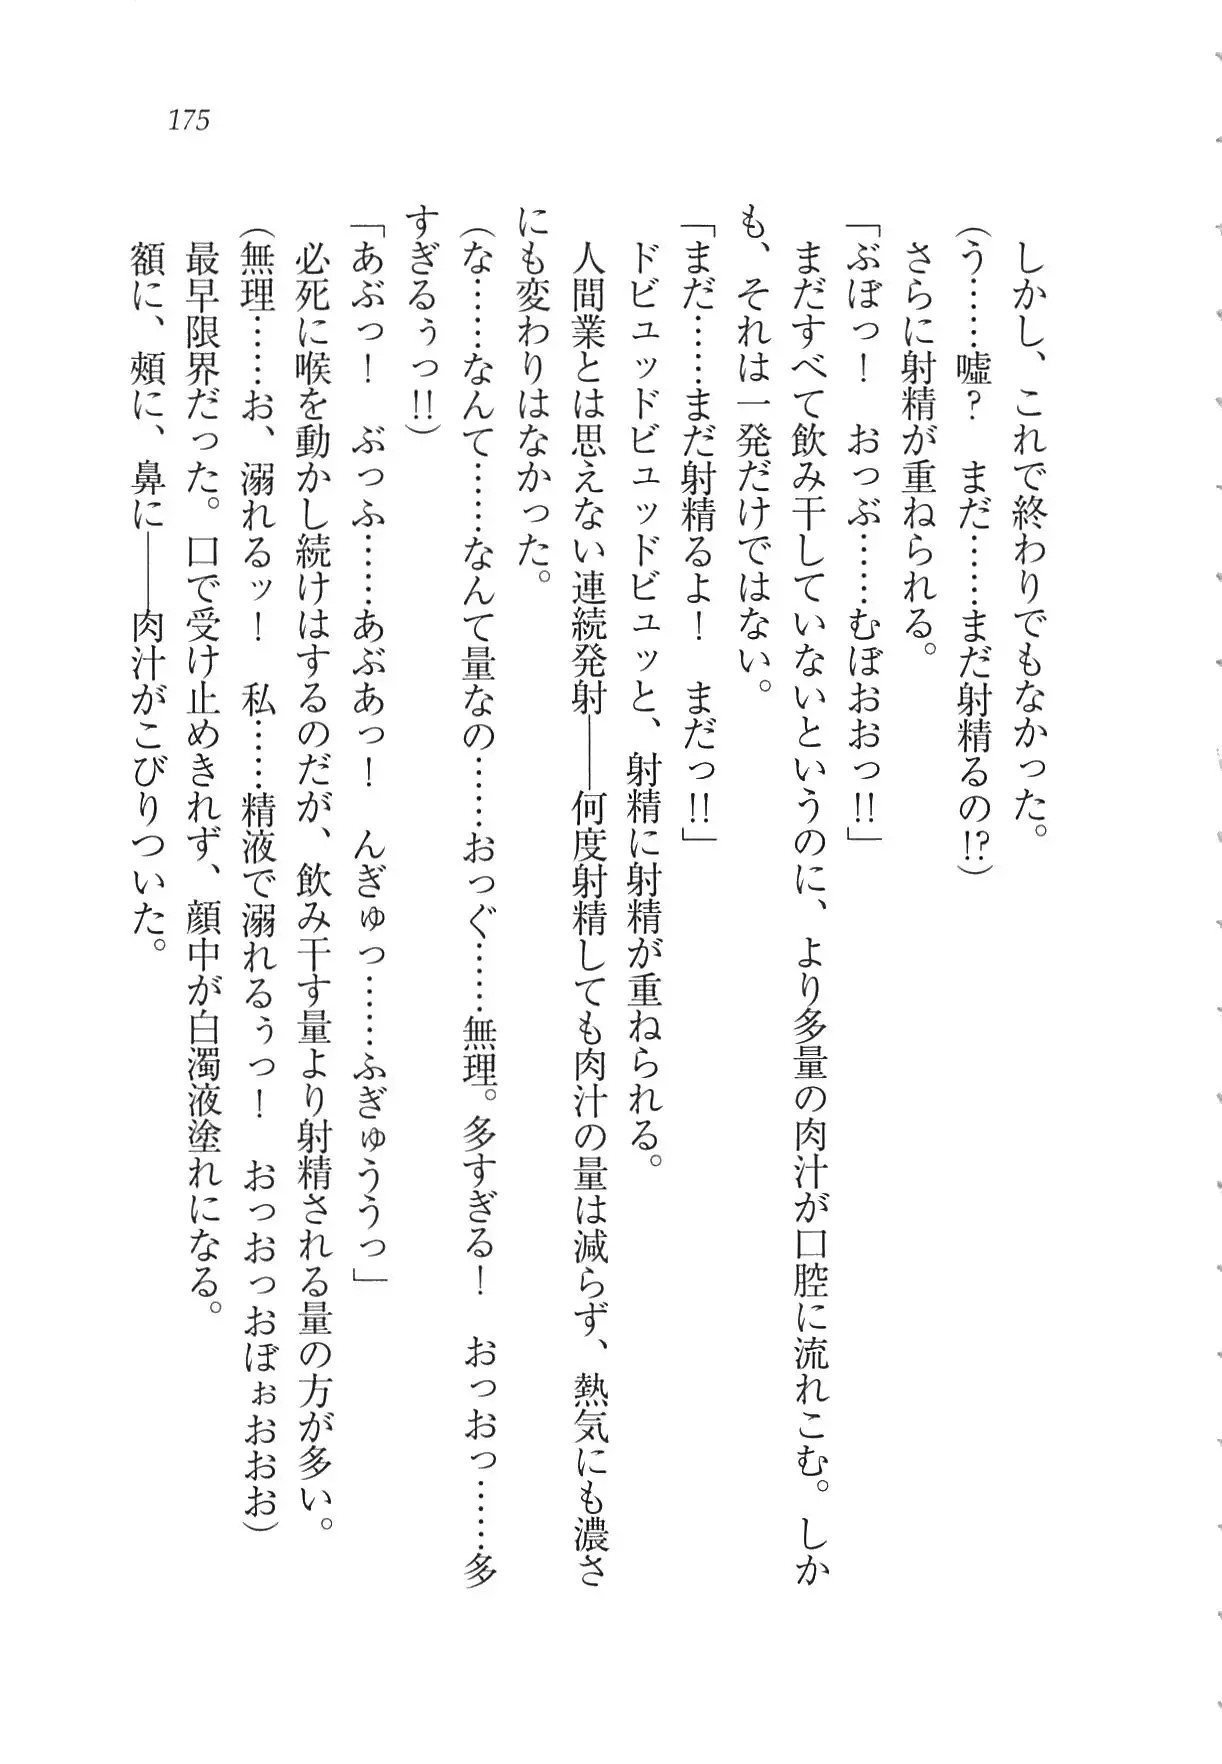 175
しかし、これで終わりでもなかった。
(う……嘘？　まだ……まだ射精るの!?)
さらに射精が重ねられる。
「ぶぼっ！　おっぶ……むぼおおっ!!」
まだすべて飲み干していないというのに、より多量の肉汁が口腔に流れこむ。しか
も、それは一発だけではない。
「まだ……まだ射精るよ！　まだっ!!」
ドビュッドビュッドビュッと、射精に射精が重ねられる。
人間業とは思えない連続発射――何度射精しても肉汁の量は減らず、熱気にも濃さ
にも変わりはなかった。
(な……なんて……なんて量なの……おっぐ……無理。多すぎる！　おっおっ……多
すぎるぅっ!!)
「あぶっ！　ぶっふ……あぶあっ！　んぎゅっ……ふぎゅううっ」
必死に喉を動かし続けはするのだが、飲み干す量より射精される量の方が多い。
(無理……お、溺れるッ！　私……精液で溺れるぅっ！　おっおっおぼぉおおお)
最早限界だった。口で受け止めきれず、顔中が白濁液塗れになる。
額に、頰に、鼻に――肉汁がこびりついた。